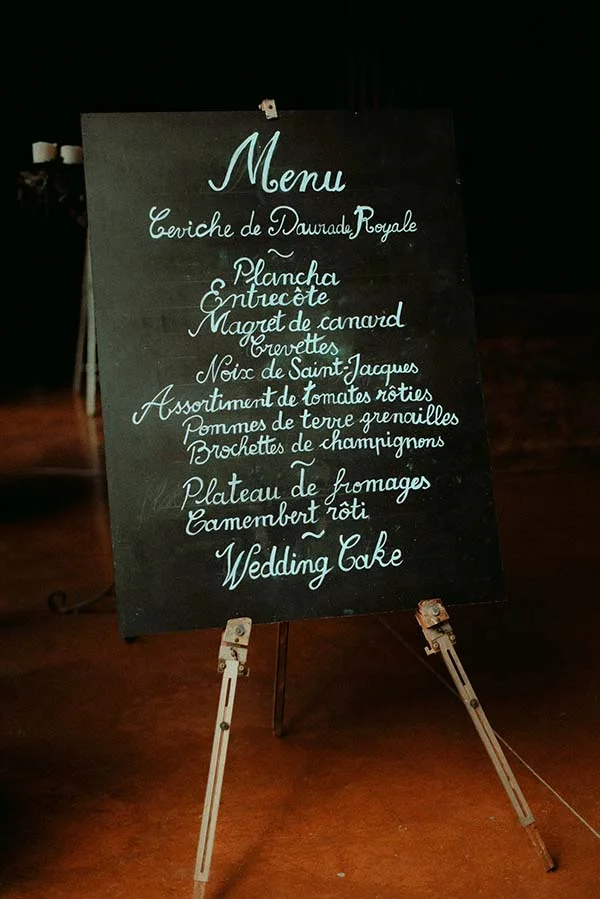 Menu
Ceviche de Daurade Royale
~
Plancha
Entrecôte
Magret de canard
Crevettes
Noix de Saint-Jacques
Assortiment de tomates rôties
Pommes de terre grenailles
Brochettes de champignons
~
Plateau de fromages
Camembert rôti
~
Wedding Cake